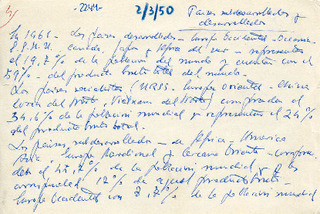 2/3/50
Países subdesarrollados y
desarrollados
En 1961 - los países desarrollados - Europa Occidental - Oceanía
EE.UU. Canadá, Japón y África del Sur - representan
el 19.7% de la población del mundo y cuentan con el
59% - del producto bruto total del mundo.
Los países socialistas (URSS - Europa Oriental - China
Corea del Norte, Vietnam del Norte) comprenden
34.6% de la población mundial y representan el 24%
del producto bruto total.
Los países subdesarrollados - de África - América
Asia Europa Meridional y Cercano Oriente - compren
den el 45.7% de la población mundial y les
17% de aquel producto bruto -
Europa Occidental con % de la población mundial